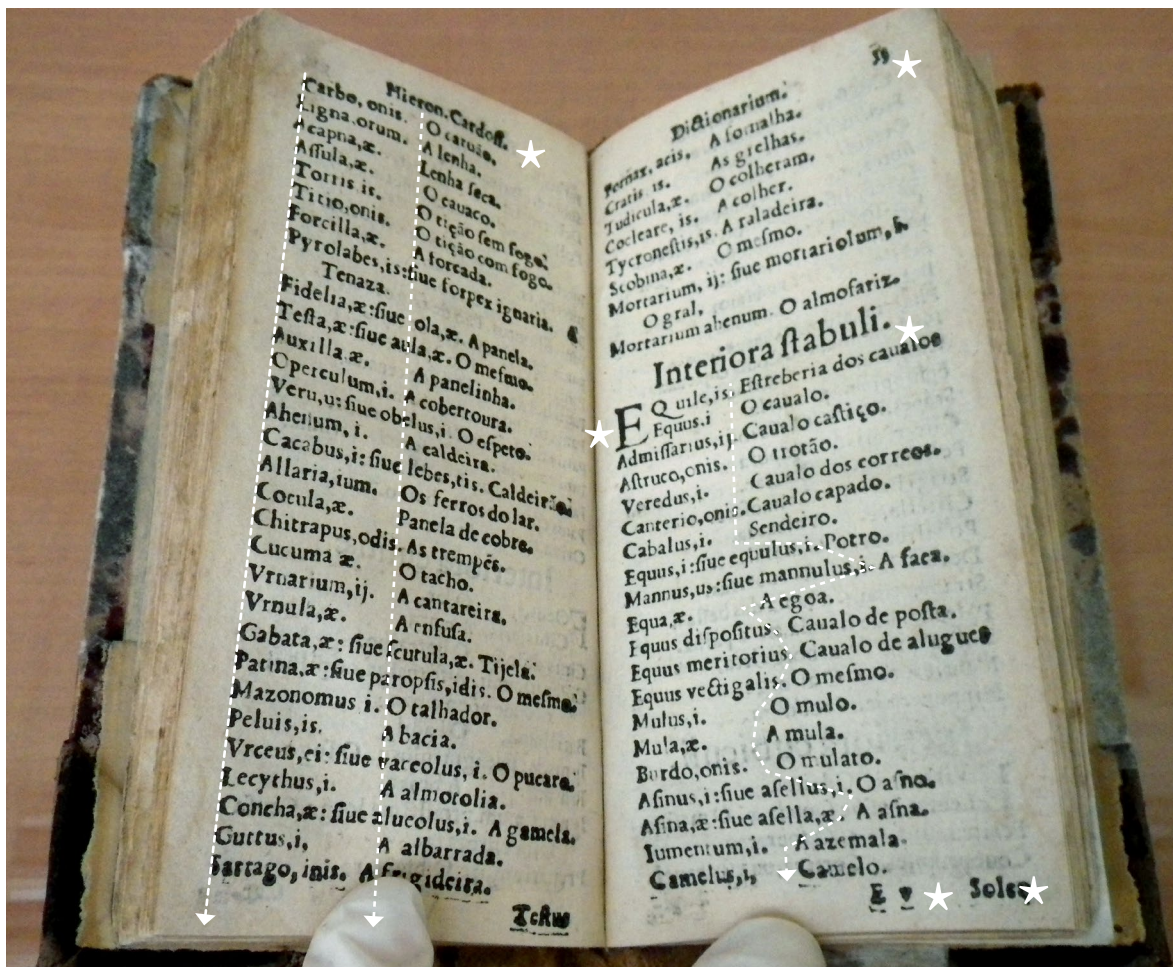 Hieron. Cardoſſ.
Carbo, onis. O caruão.
Ligna. orum. A lenha.
Acapna,æ. Lenha ſeca.
Aſſula,æ. O cauaco.
Torris is. O tição ſem fogo.
Titio,onis. O tição com fogo.
Forcilla,æ. A forcada.
Pyrolabes,is:ſiue forpex ignaria.
Tenaza.
Fidelia,æ:ſiue ola,æ. A panela.
Teſta,æ:ſiue aula,æ. O meſmo.
Auxilla æ. A panelinha.
Operculum,i. A cobertoura.
Veru,u: ſiue obelus,i. O eſpeto.
Ahenum, i. A caldeira.
Cacabus,i: ſiue lebes,tis. Caldeirão.
Allaria,ium. Os ferros do lar.
Cocula,æ. Panela de cobre.
Chitrapus,odis. As trempẽs.
Cucuma æ. O tacho.
Vrnarium,ij. A cantareira.
Vrnula,æ. A enfuſa.
Gabata,æ: ſiue ſcutula,æ. Tijela.
Patina,æ:ſiue paropſis,idis. O meſmo.
Mazonomus i. O talhador.
Peluis,is. A bacia.
Vrceus,ei: ſiue vrceolus, i. O pucaro.
Lecythus,i. A almotolia.
Concha,æ: ſiue alueolus,i. A gamela.
Guttus,i, A albarrada.
Sartago,inis. A frigideira.
Dictionarium. 59
Fornax. acis. A fornalha.
Cratis is. As grelhas.
Tudicula,æ. O colheram.
Cocleare, is. A colher.
Tycroneſtis,is. A raladeira.
Scobina,æ. O meſmo.
Mortarium, ij: ſiue mortariolum,i.
O gral,
Mortarium ahenum. O almofariz.
Interiora ſtabuli.
EQuile,is. Eſtreberia dos caualos
Equus.i O caualo.
Admiſſarius,ij. Caualo caſtiço.
Aſtruco,onis. O trotão.
Veredus,i. Caualo dos correos.
Canterio,onis. Caualo capado.
Cabalus,i. Sendeiro.
Equus,i:ſiue equulus,i. Potro.
Mannus,us:ſiue mannulus,i. A faca.
Equa,æ. A egoa.
Equus diſpoſitus. Caualo de poſta.
Equus meritorius Caualo de alugues
Equus vectigalis. O meſmo.
Mulus,i. O mulo.
Mula,æ. A mula.
Burdo,onis. O mulato.
Aſinus,i:ſiue aſellus,i. O aſno.
Aſina,æ:ſiue aſella,æ. A aſna.
Iumentum,i. A azemala.
Camelus,i, Camelo.